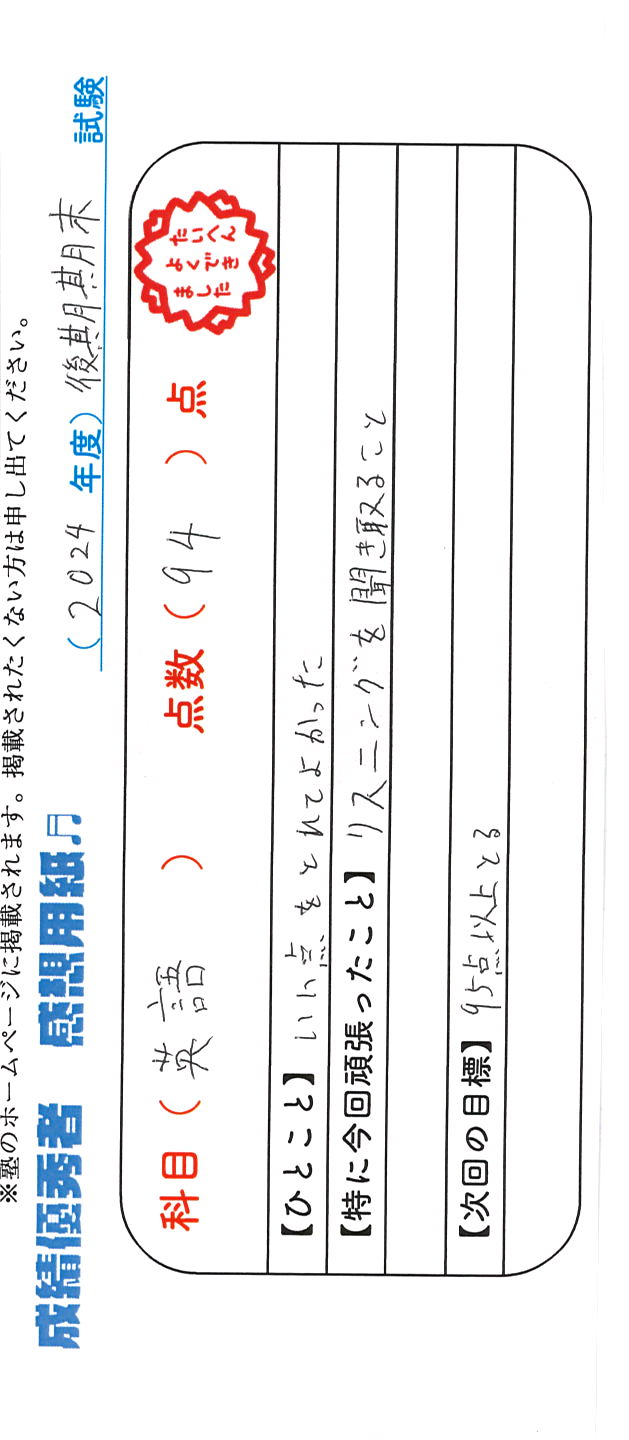 ※塾のホームページに掲載されます。掲載されたくない方は申し出てください。
成績優秀者 感想用紙♫
（2024年度）後期期末 試験
科目（英語） 点数（94）点
たいへん
よくでき
ました
【ひとこと】いい点をとれてよかった
【特に今回頑張ったこと】リスニングを聞き取ること
【次回の目標】95点以上とる